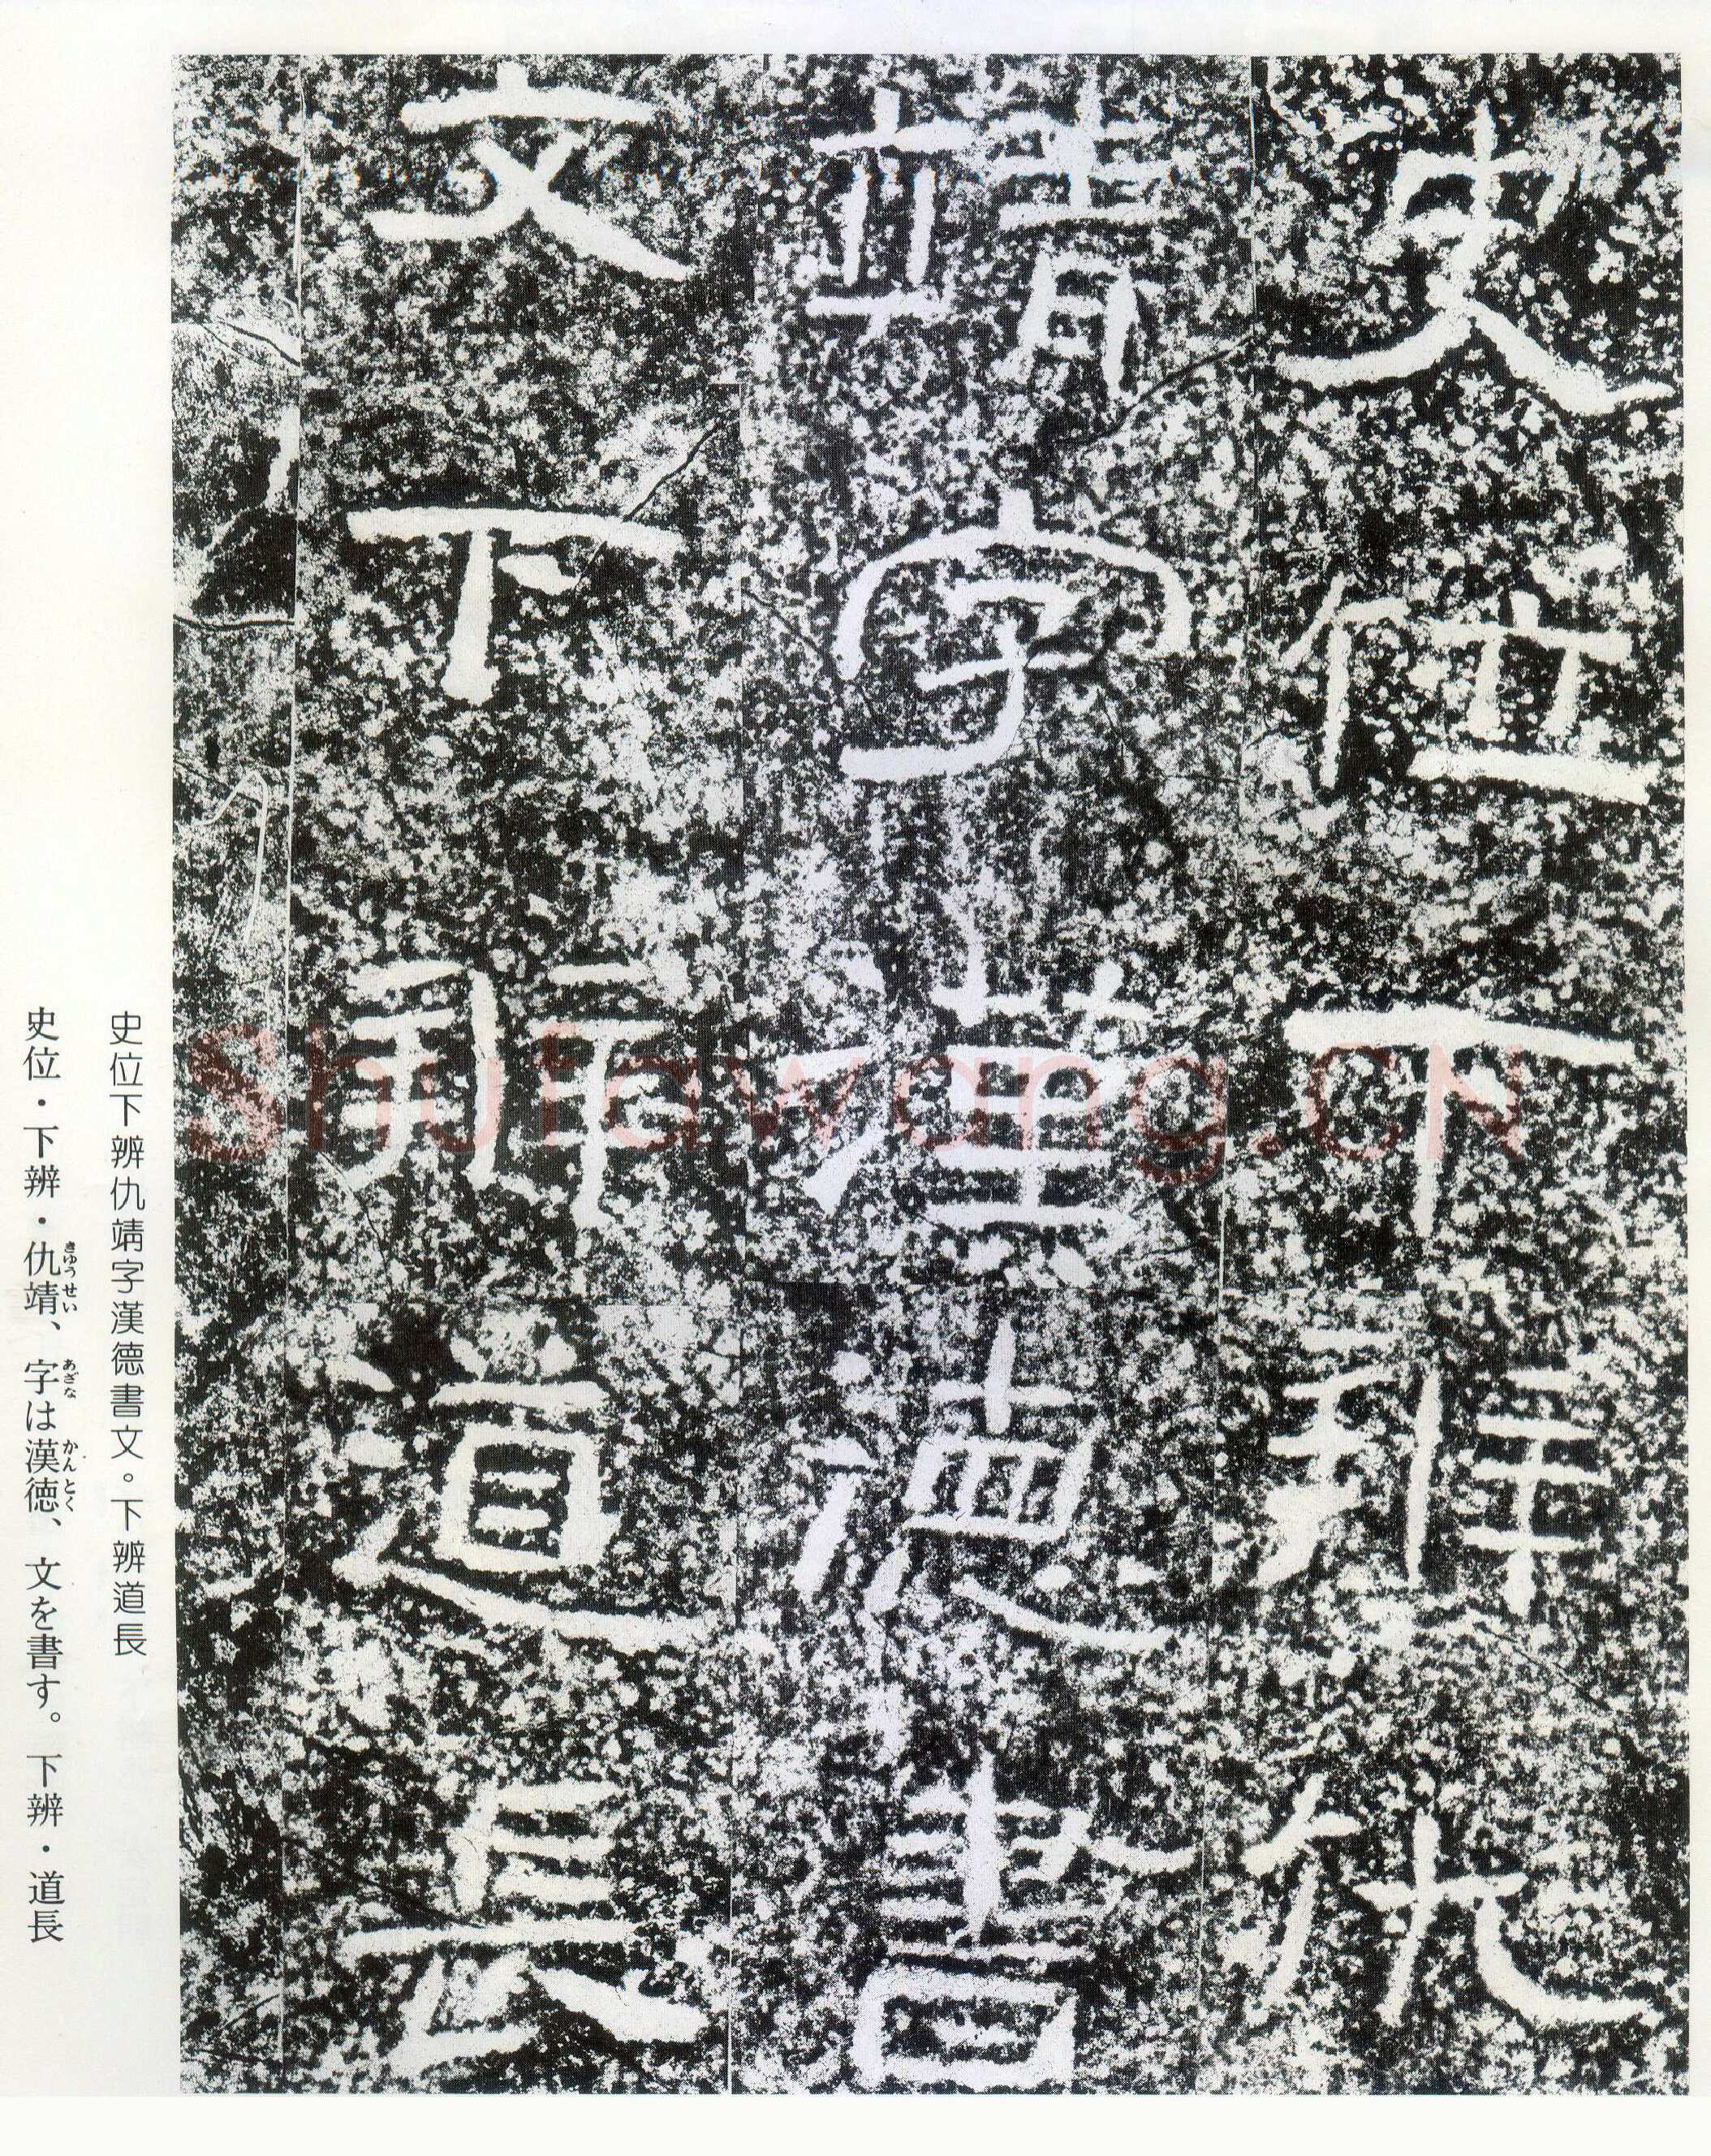 史位下辨仇
靖字漢德書
文下辨道長
史位下辨仇靖字漢德書文。下辨道長
史位・下辨・仇靖、字は漢徳、文を書す。下辨・道長
きゅうせい あざな かんとく
Shufawang.CN